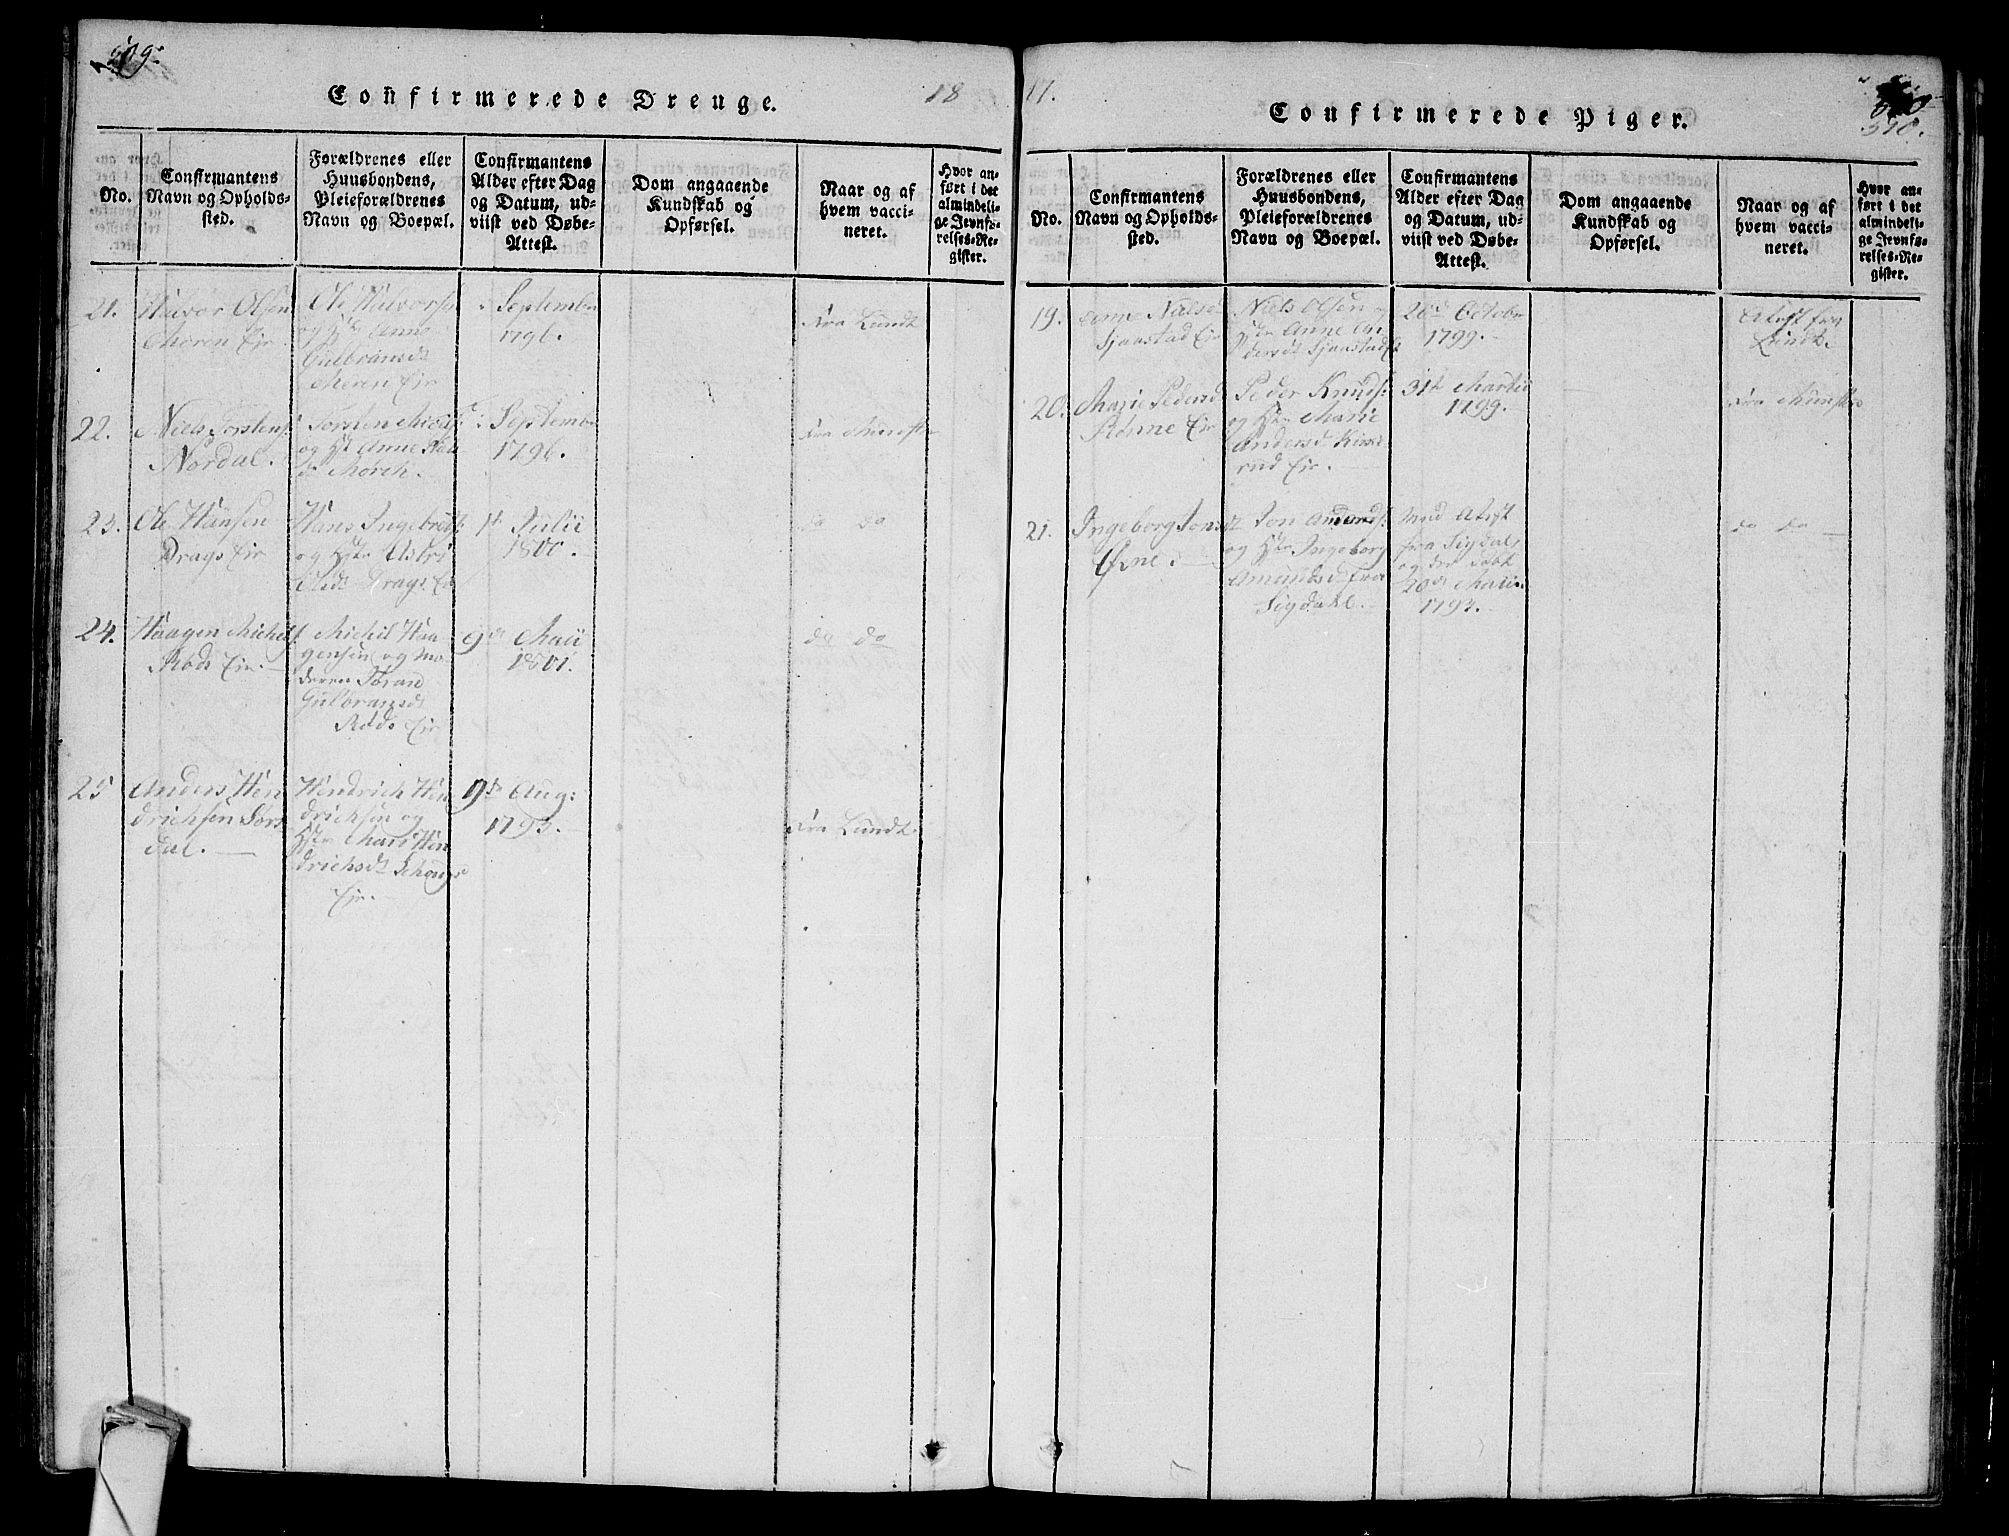 Confirmerede Drenge.
18
No.
Confirmantens
Navn og Opholds-
sted.
Forældrenes eller
Huusbondens,
Pleieforældrenes
Navn og Boepæl.
Confirmantens
Alder efter Dag
og Datum, ud-
viist ved Døbe-
Attest.
Dom angaaende
Kundskab og
Opførsel.
Naar og af
hvem vacci-
neret.
Hvor an-
ført i det
almindeli-
ge Jevnfø-
relses-Re-
gister.
21.
Halvor Olsen
Moren Eie
Ole Halvors
og Hstr Anne
Gulbransdt
Moren Eie
September
1796.
Fra Lundt
22.
Niels Torstens:
Nordal.
Torsten
og Hst Anne
Septembr
1796.
Fra Munster
23.
Ole Hansen
Drags Eie
Hans Ingebret:
og Hstr Astri
Olsdt Drags Eie
1t Julii
1800.
do do
24.
Haagen Michels
Røds Eie.
Michil Haa
gensen og Mo
deren Joran
Gulbransdt
Røds Eie
9de Maii
1801.
do do
25
Anders Hen
drichsen Sørs
dal.
Hendrich Hen
drichsen og
Hstr Mari Hen
drichsdt
Eie.
9de Aug:
1793.
Fra Lundt
17.
390.
Confirmerede Piger.
No.
Confirmantens
Navn og Opholds-
sted.
Forældrenes eller
Huusbondens,
Pleieforældrenes
Navn og Boepæl.
Confirmantens
Alder efter Dag
og Datum, ud-
viist ved Døbe-
Attest.
Dom angaaende
Kundskab og
Opførsel.
Naar og af
hvem vacci-
neret.
Hvor an-
ført i det
almindeli-
ge Jevnfø-
relses-Re-
gister.
19.
Anne Nielsd
Sjaastad Eie
Niels Olsen og
Hstr Anne An
dersdt Sjaastad
26de Octobr
1799.
Attest fra
Lundt.
20.
Marie Pedersd
Rønne Eie
Peder Knuds:
og Hstr Marie
Andersd Kirke
rud Eie.
31te Martii
1799.
Fra Munster
21.
Ingeborg Jonsdt
Øxne.
Jon Anders:
og Hstr Ingeborg
Amundsd fra
Sigdahl.
Med Attest
fra Sigdal,
og der døbt
20de Maii
1793.
do do